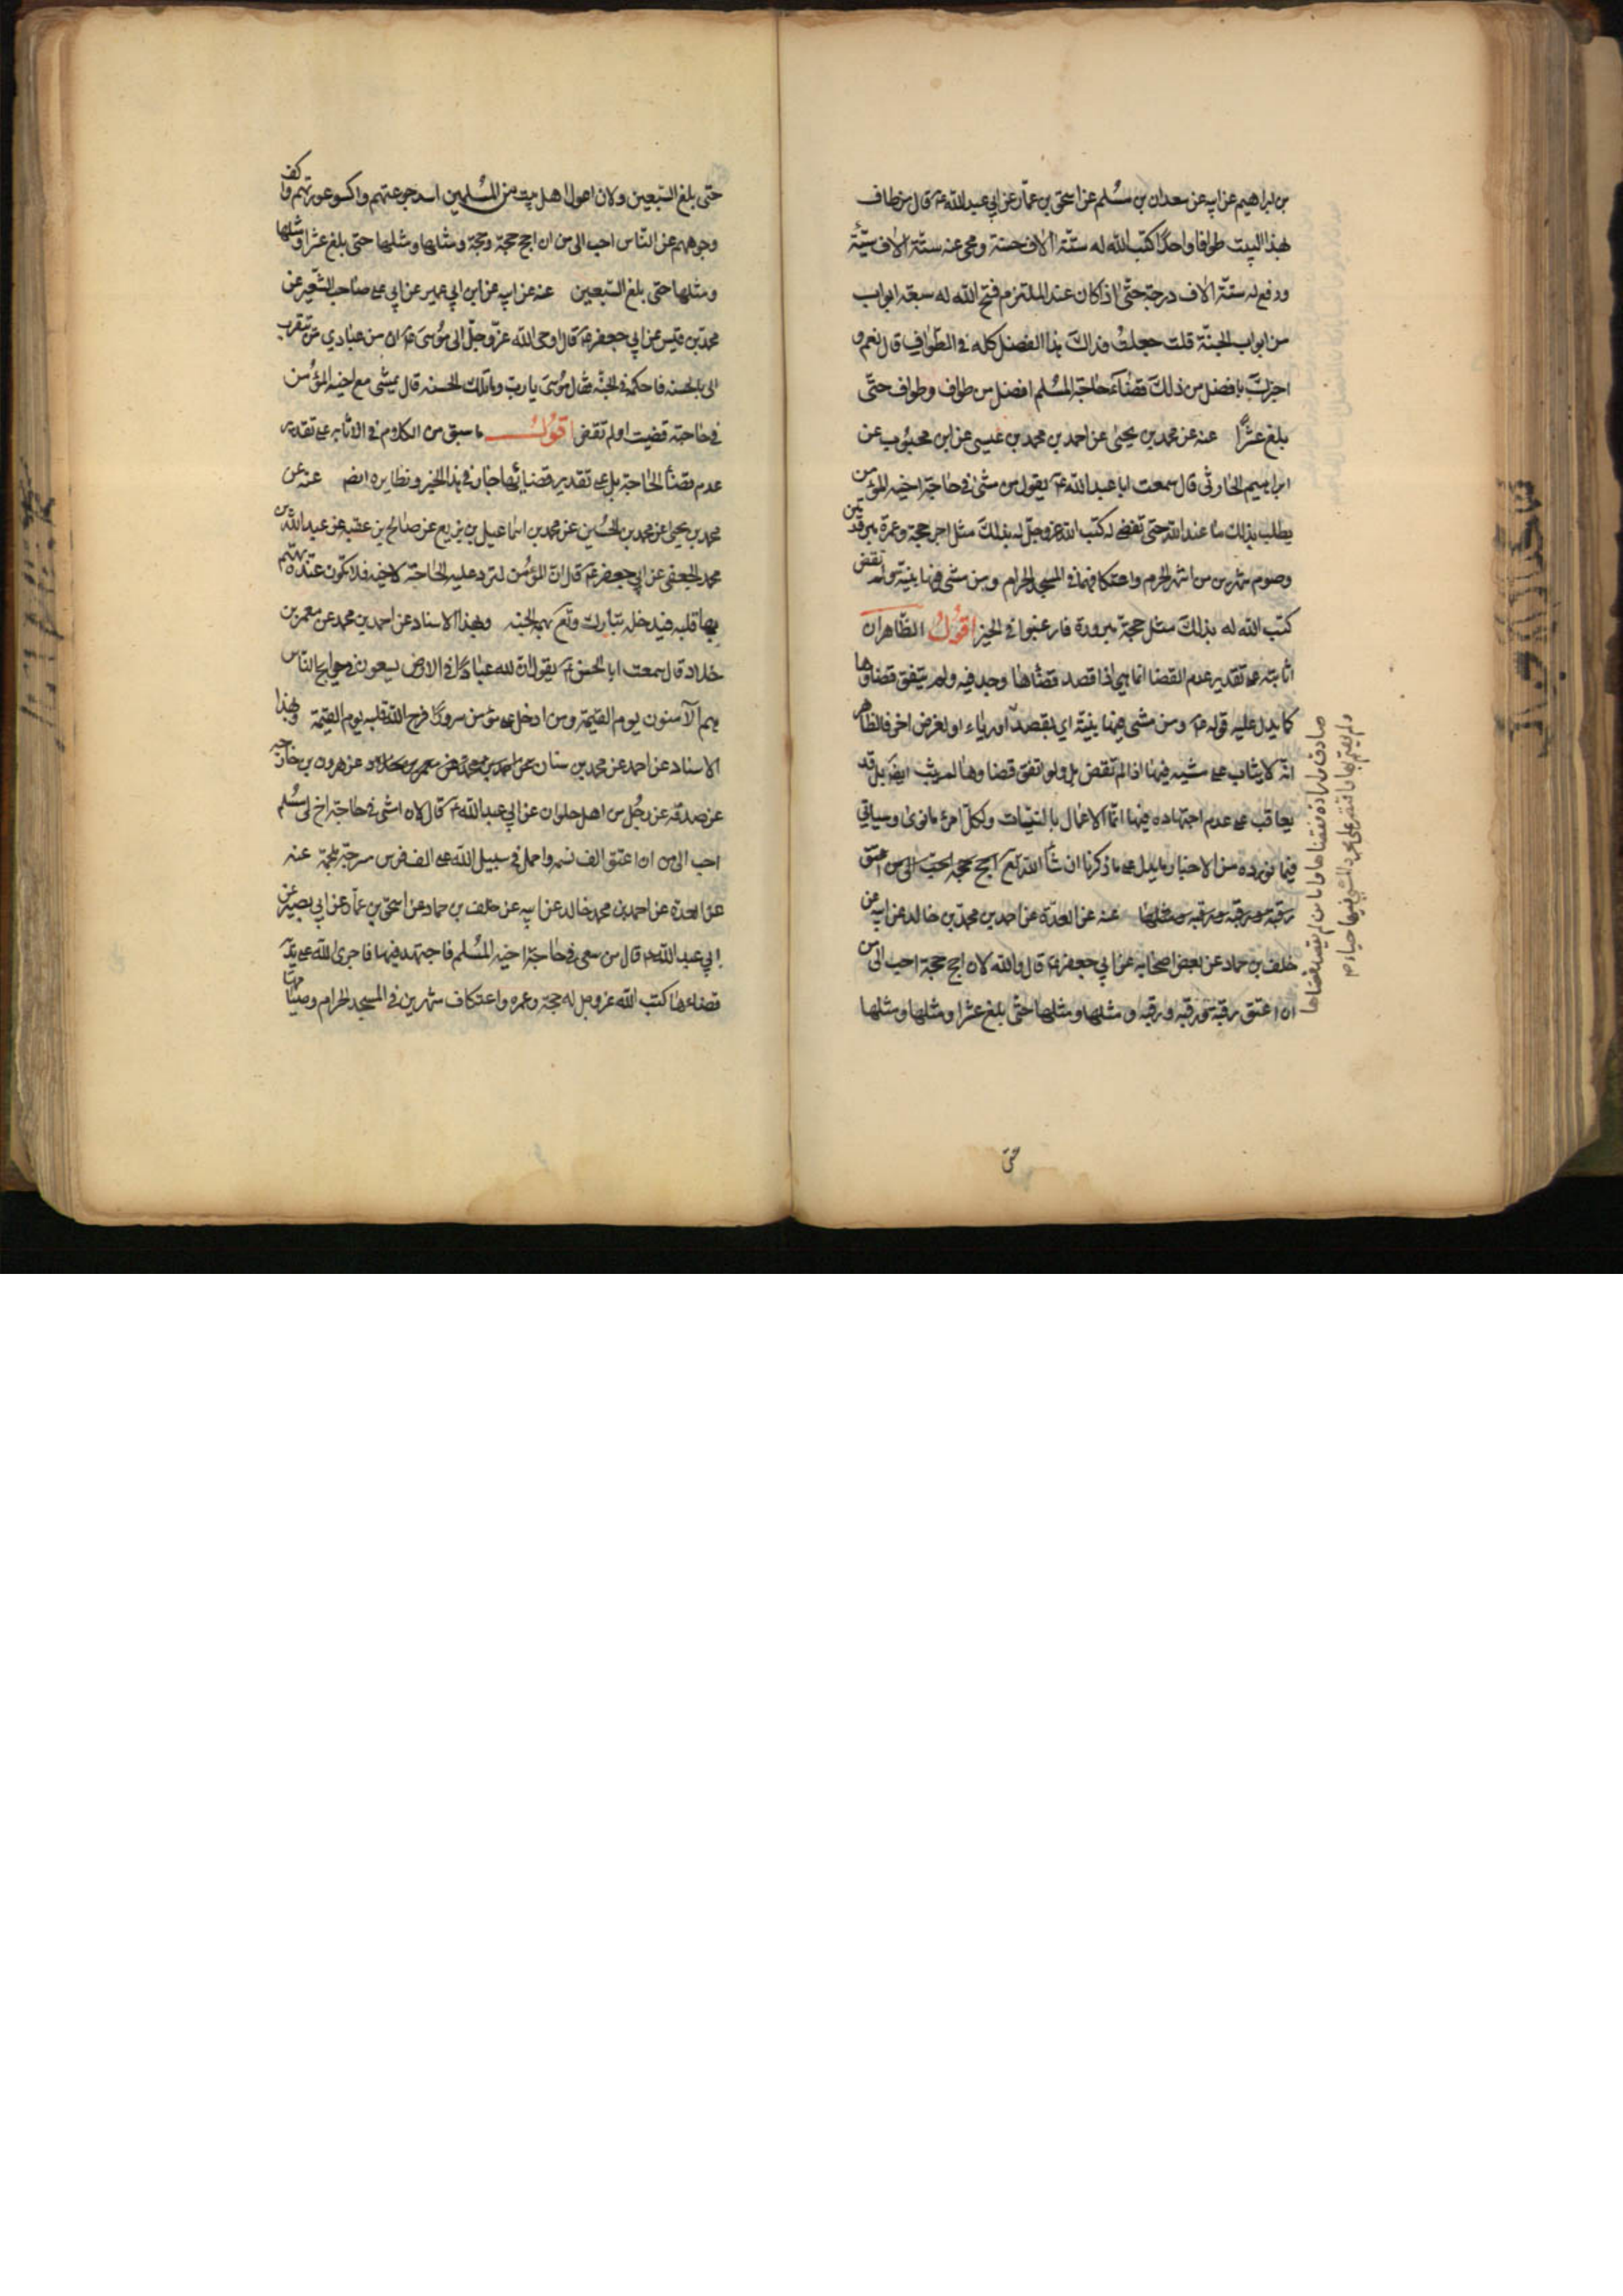 بن ابراهيم عن ابيه عن سعدان بن مسلم عن اسحق بن عمار عن ابي عبد الله ع قال من طاف
بهذا البيت طوافا واحدا كتب الله له ستة الاف حسنة ومحى عنه ستة الاف سيئة
ورفع له ستة الاف درجة حتى اذا كان عند الملتزم فتح الله له سبعة ابواب
من ابواب الجنة قلت جعلت فداك هذا الفضل كله في الطواف قال نعم و
اخبرك بافضل من ذلك قضاء حاجة المسلم افضل من طواف وطواف حتى
بلغ عشرا عنه عن محمد بن يحيى عن احمد بن محمد بن عيسى عن ابن محبوب عن
ابراهيم الخارقي قال سمعت ابا عبد الله ع يقول من مشى في حاجة اخيه المؤمن
يطلب بذلك ما عند الله حتى تقضى له كتب الله عز وجل له بذلك مثل اجر حجة وعمرة مبرورتين
وصوم شهرين من اشهر الحرم واعتكافهما في المسجد الحرام ومن مشى فيها بنية ولم تقض
كتب الله له بذلك مثل حجة مبرورة فارغبوا في الخير اقول الظاهر ان
اثابته على تقدير عدم القضا انما هي اذا قصد قضاها وجد فيه ولم يتفق قضاؤها
كما يدل عليه قوله ع ومن مشى فيها بنية اي بقصد او رياء او لغرض اخر فالظاهر
انه لا يثاب على مشيه فيها اذا لم تقض بل ولو اتفق قضاوها لم يثب ايضا بل قد
يعاقب على عدم اجتهاده فيها انما الاعمال بالنيات ولكل امرئ ما نوى وسياتي
فيما نورده من الاخبار ما يدل على ما ذكرنا ان شا الله تع احج حجة احب الى من اعتق
رقبة ورقبة ورقبة ومثلها عنه عن العدة عن احمد بن محمد بن خالد عن ابيه عن
خلف بن حماد عن بعض اصحابه عن ابي جعفر ع قال والله لان احج حجة احب الى من
ان اعتق رقبة ورقبة ورقبة ومثلها ومثلها حتى بلغ عشرا ومثلها ومثلها
حتى
حتى بلغ السبعين ولان اعول اهل بيت من المسلمين اسد جوعتهم واكسو عورتهم واكف
وجوههم عن الناس احب الى من ان احج حجة وحجة ومثلها ومثلها حتى بلغ عشرا ومثلها
ومثلها حتى بلغ السبعين عنه عن ابيه عن ابن ابي عمير عن ابي على صاحب الشعير عن
محمد بن قيس عن ابي جعفر ع قال اوحى الله عز وجل الى موسى ع ان من عبادي من يتقرب
الى بالحسنه فاحكمه في الجنة فقال موسى يا رب وما تلك الحسنه قال يمشى مع اخيه المؤمن
في حاجته قضيت او لم تقض اقول ما سبق من الكلام في الاثابه على تقدير
عدم قضا الحاجة بل على تقدير قضائها جار في هذا الخبر ونظايره ايضا عنه عن
محمد بن يحيى عن محمد بن الحسين عن محمد بن اسماعيل بن بزيع عن صالح بن عقبه عن عبد الله بن
محمد الجعفى عن ابي جعفر ع قال ان المؤمن لترد عليه الحاجة لاخيه فلا تكون عنده يهتم
بها قلبه فيدخله تبارك وتع بهمه الجنه وبهذا الاسناد عن احمد بن محمد عن معمر بن
خلاد قال سمعت ابا الحسن ع يقول ان لله عبادا في الارض يسعون في حوايج الناس
هم الآمنون يوم القيمة ومن ادخل على مؤمن سرورا فرح الله قلبه يوم القيمة وبهذا
الاسناد عن احمد عن محمد بن سنان عن هرون بن خارجه
عن صدقه عن رجل من اهل حلوان عن ابي عبد الله ع قال لان امشى في حاجة اخ لى مسلم
احب الى من ان اعتق الف نسمه واحمل في سبيل الله على الف فرس مسرجة ملجمة عنه
عن العدة عن احمد بن محمد خالد عن ابيه عن خلف بن حماد عن اسحق بن عمار عن ابي بصير عن
ابي عبد الله ع قال من سعى في حاجة اخيه المسلم فاجتهد فيها فاجرى الله على يديه
قضاءها كتب الله عز وجل له حجة وعمره واعتكاف شهرين في المسجد الحرام وصيامهما